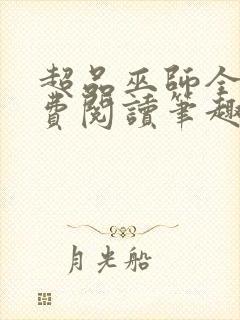 超品巫師全
費閱讀筆趣
月光船